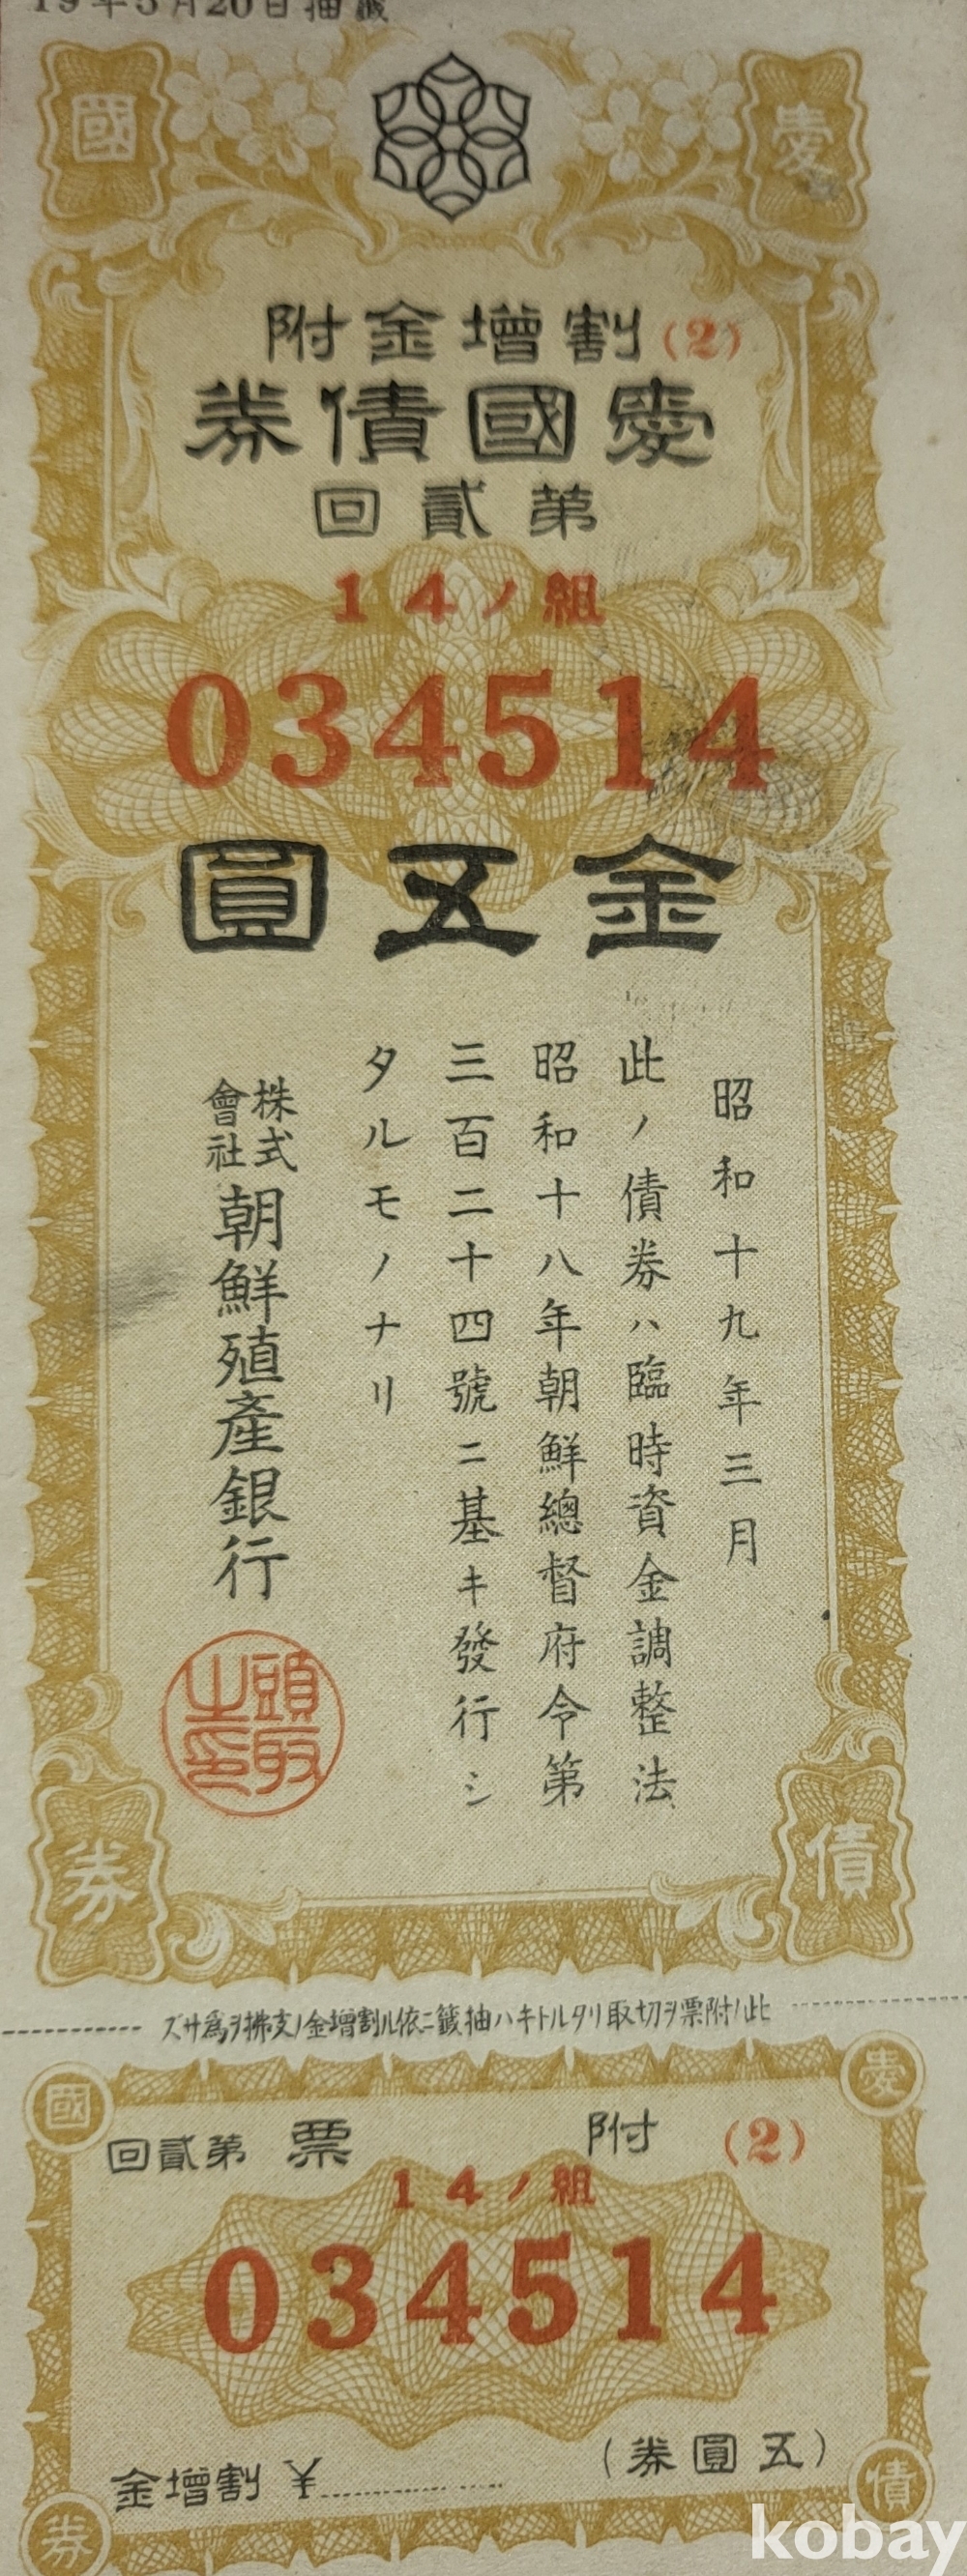 19年 月20日抽籤
愛國
割增金附
(2)
愛國債券
第貳回
14ノ組
034514
金五圓
昭和十九年三月
此ノ債券ハ臨時資金調整法
昭和十八年朝鮮總督府令第
三百二十四號ニ基キ發行シ
タルモノナリ
株式會社朝鮮殖產銀行
頭取之印
債券
此ノ附票ヲ切取リタルトキハ抽籤ニ依ル割增金ノ支拂ヲ爲サズ
愛國
(2)
附票 第貳回
14ノ組
034514
(五圓券)
割增金 ¥
債券
kobay